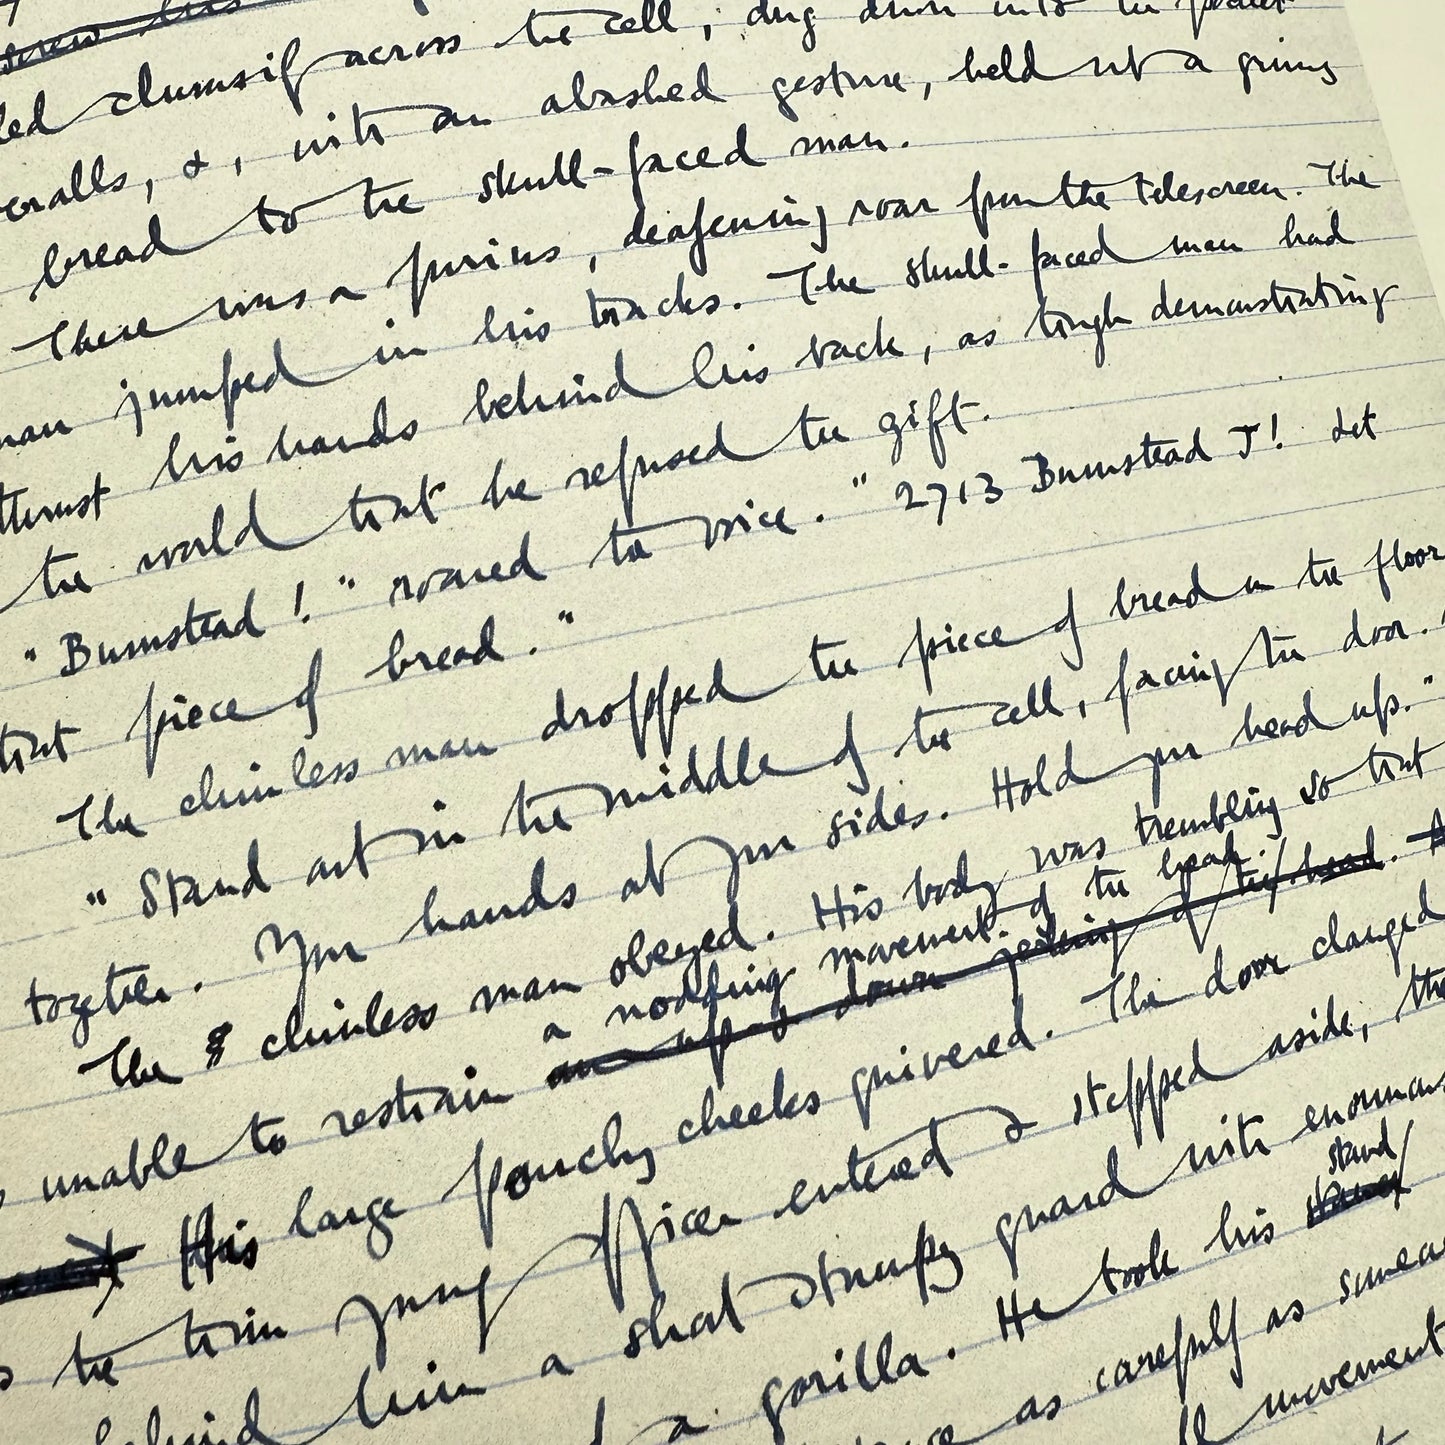 screw his
led clumsily across the cell, dug down into the pocket
eralls, &, with an abashed gesture, held out a grimy
bread to the skull-faced man.
There was a furious, deafening roar from the telescreen. The
man jumped in his tracks. The skull-faced man had
thrust his hands behind his back, as though demonstrating
the world that he refused the gift.
"Bumstead!" roared the voice. "2713 Bumstead J! Let
that piece of bread."
The chinless man dropped the piece of bread on the floor
"Stand out in the middle of the cell, facing the door."
together. Your hands at your sides. Hold your head up."
The chinless man obeyed. His body was trembling so that
a nodding movement of the head.
unable to restrain an up & down jerking of his head.
His large pouchy cheeks quivered. The door clanged
the trim young officer entered & stepped aside, the
behind him a short stumpy guard with enormous
stand
a gorilla. He took his
as carefully as
movement